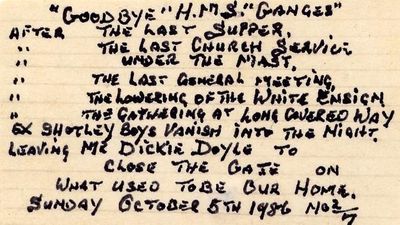 "GOODBYE" H.M.S. "GANGES"
AFTER THE LAST SUPPER,
" THE LAST CHURCH SERVICE
UNDER THE MAST,
" THE LAST GENERAL MEETING,
" THE LOWERING OF THE WHITE ENSIGN
" THE GATHERING AT LONG COVERED WAY
EX SHOTLEY BOYS VANISH INTO THE NIGHT.
LEAVING ME DICKIE DOYLE TO
CLOSE THE GATE ON
WHAT USED TO BE OUR HOME.
SUNDAY OCTOBER 5TH 1986